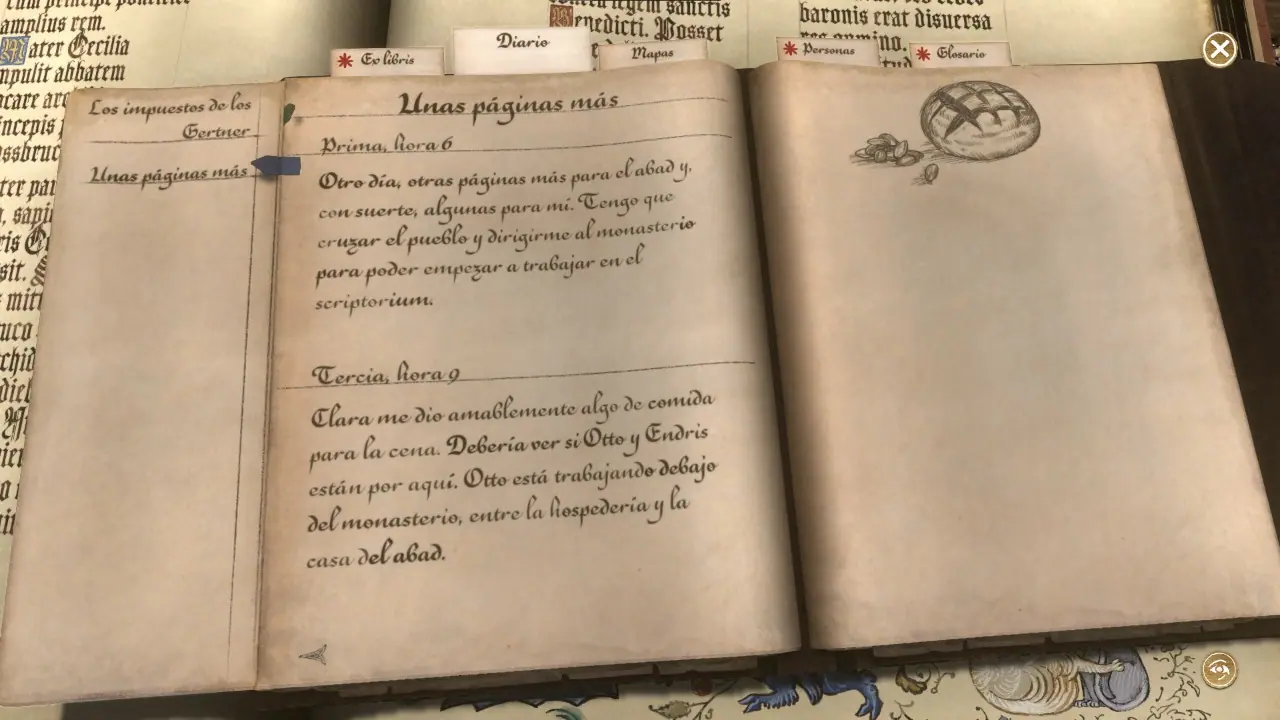 amplius rem.
ater Cecilia
npulit abbatem
sanctis
enedicti. Posset
baronis erat disuersa
Ex libris
Diario
Mapas
Personas
Glosario
Los impuestos de los
Gertner
Unas páginas más
Unas páginas más
Prima, hora 6
Otro día, otras páginas más para el abad y,
con suerte, algunas para mí. Tengo que
cruzar el pueblo y dirigirme al monasterio
para poder empezar a trabajar en el
scriptorium.
Tercia, hora 9
Clara me dio amablemente algo de comida
para la cena. Debería ver si Otto y Endris
están por aquí. Otto está trabajando debajo
del monasterio, entre la hospedería y la
casa del abad.